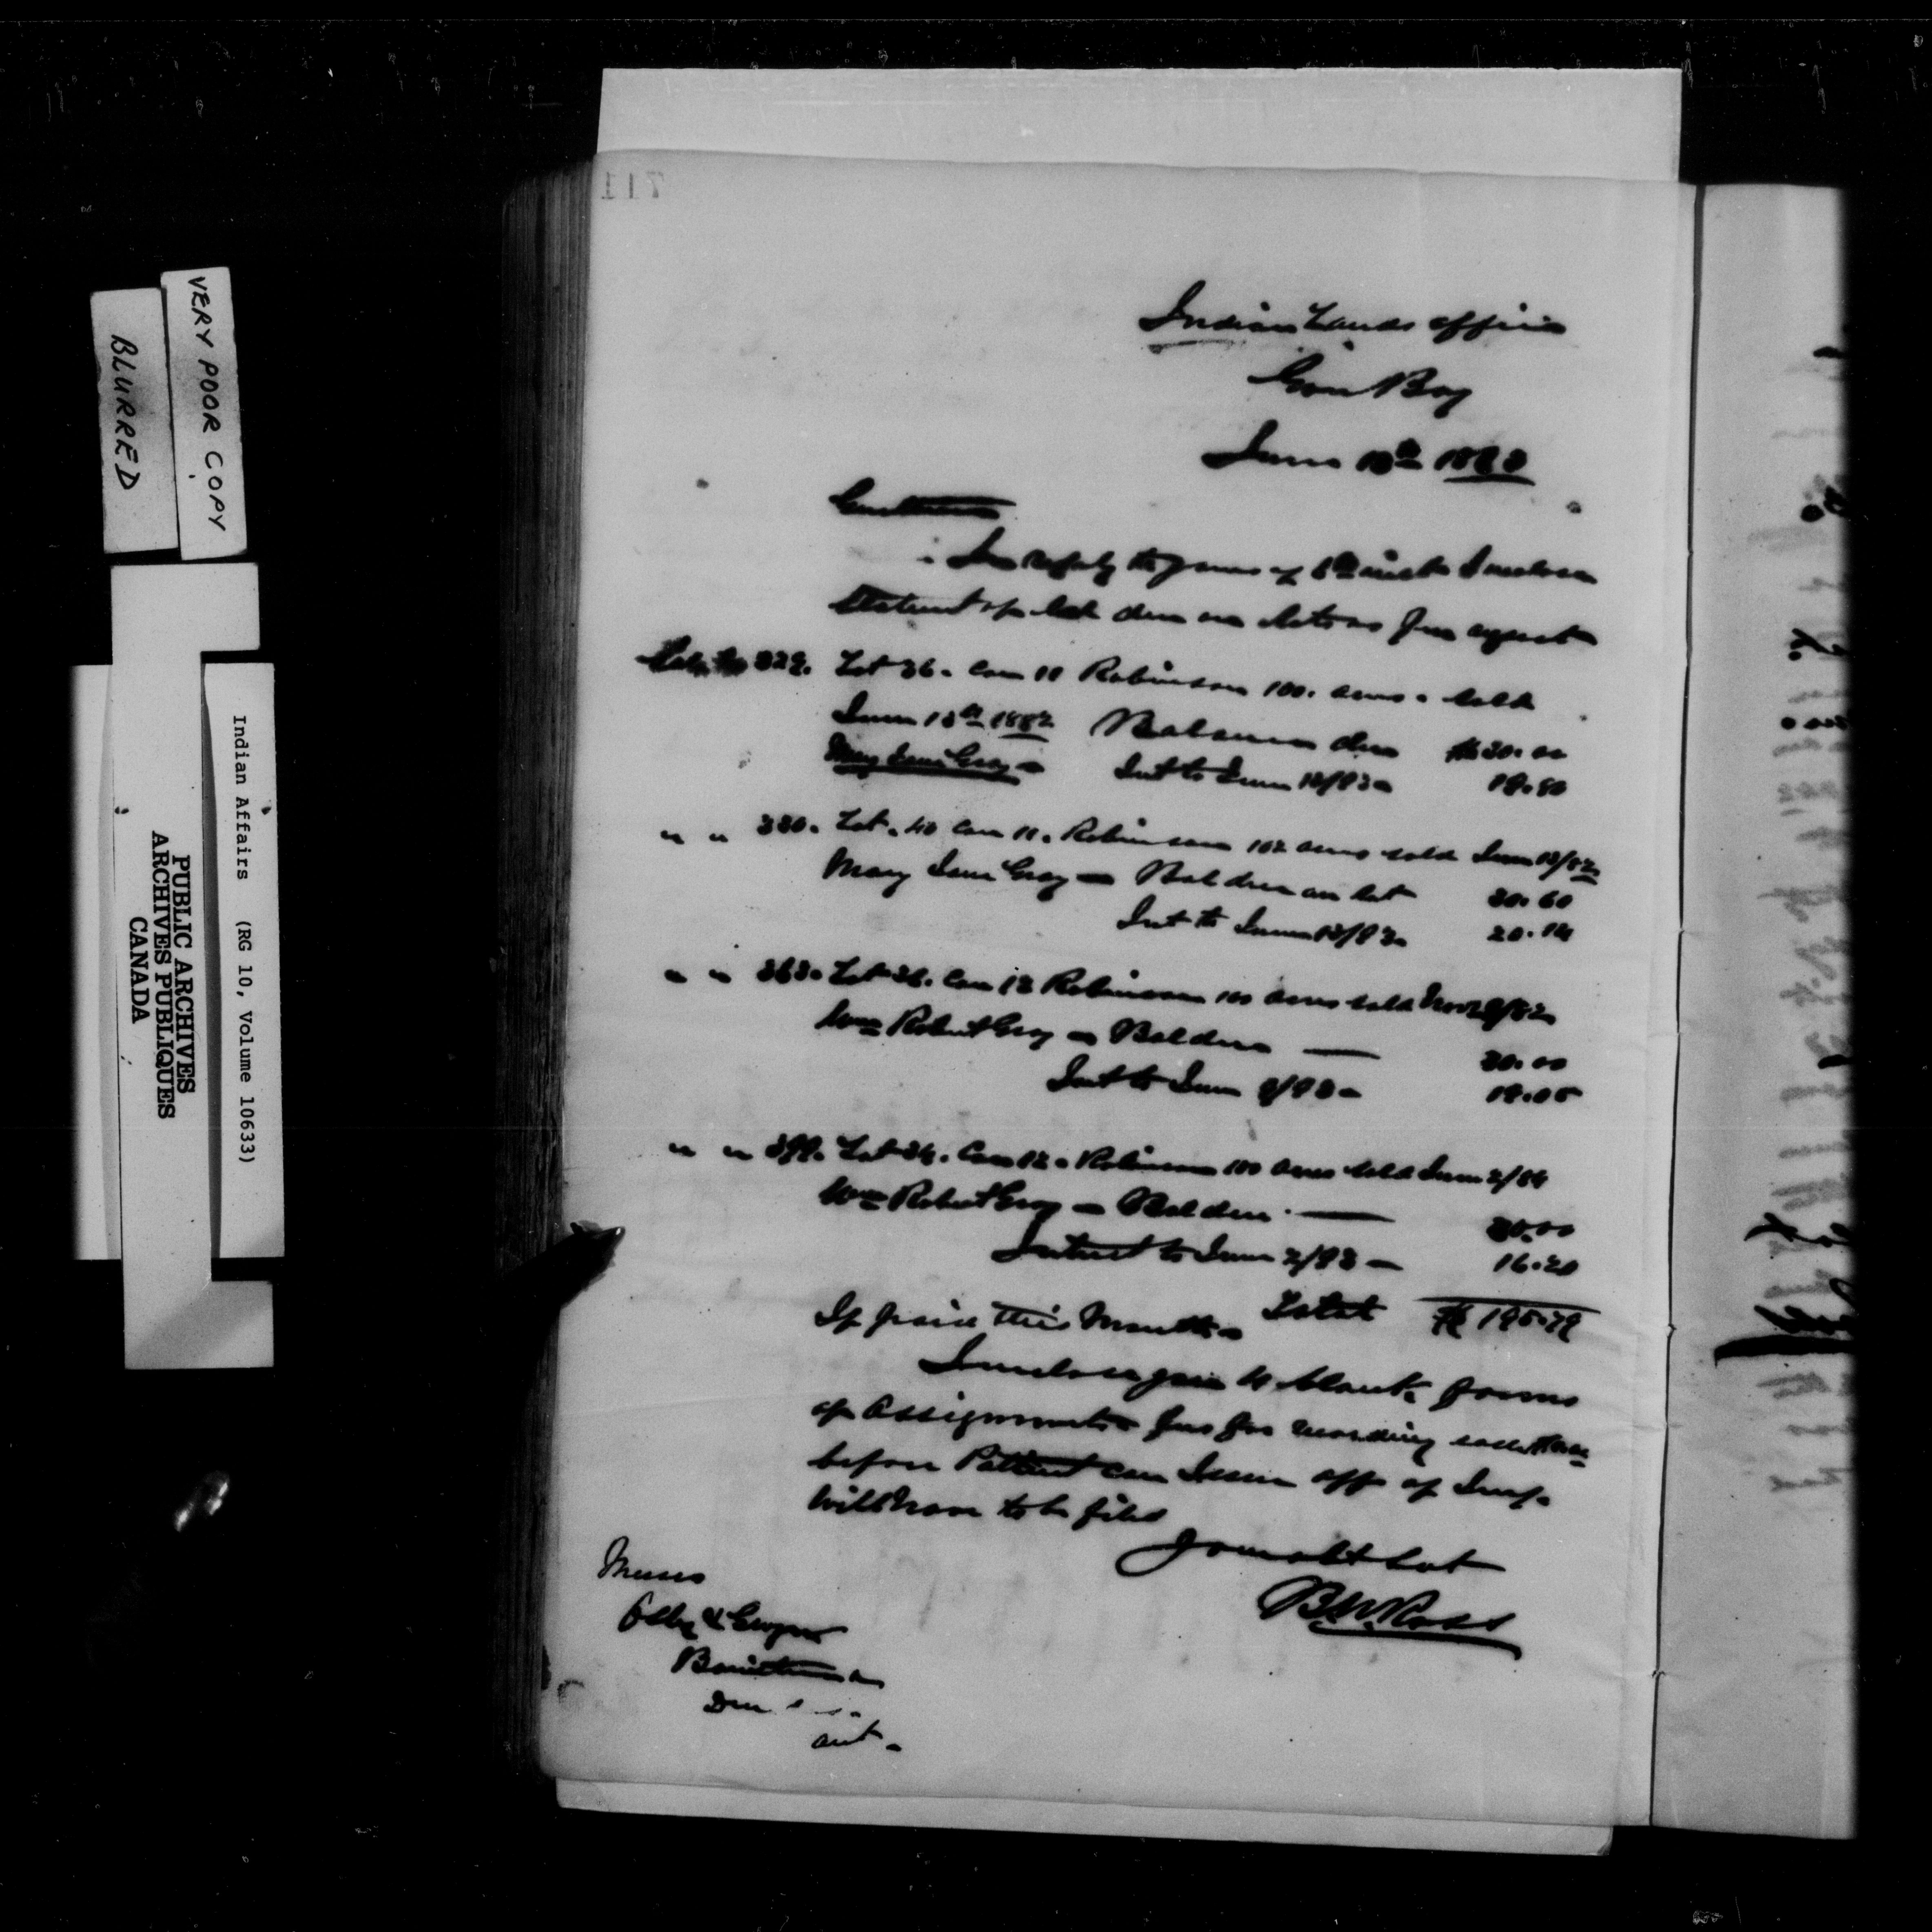 VERY POOR COPY
BLURRED
Indian Affairs (RG 10, Volume 10633)
PUBLIC ARCHIVES
ARCHIVES PUBLIQUES
CANADA
711
Indian Lands Office
Gore Bay
June
Gentlemen
In reply to yours of inst I enclose
Statement of bal due on lots as per
329. Lot 36. Con 11 Robinson 100. acres. Sold
June 13th 1882 Balance due $30.00
Mary Jane Gray — Int to June 13/93 — 19.80
" " 330. Lot. 40 Con 11. Robinson 102 acres sold June 13/82
Mary Jane Gray — Bal due on lot 30.60
Int to June 13/93 20.14
" " 363. Lot 36. Con 12 Robinson 100 acres sold
Wm Robert Gray — Bal due — 30.00
Int to June 9/93 — 19.05
" " 399. Lot 34. Con 12. Robinson 100 acres sold June 2/84
Wm Robert Gray — Bal due — 30.00
Interest to June 2/93 — 16.20
If paid this Month — Total $195.79
I enclose you 4 blank forms
of Assignments fees for recording each
before Patent can Issue aff of Imp.
will have to be filed
Your obt Svt
B.W. Ross
Messrs
Barristers
Ont.